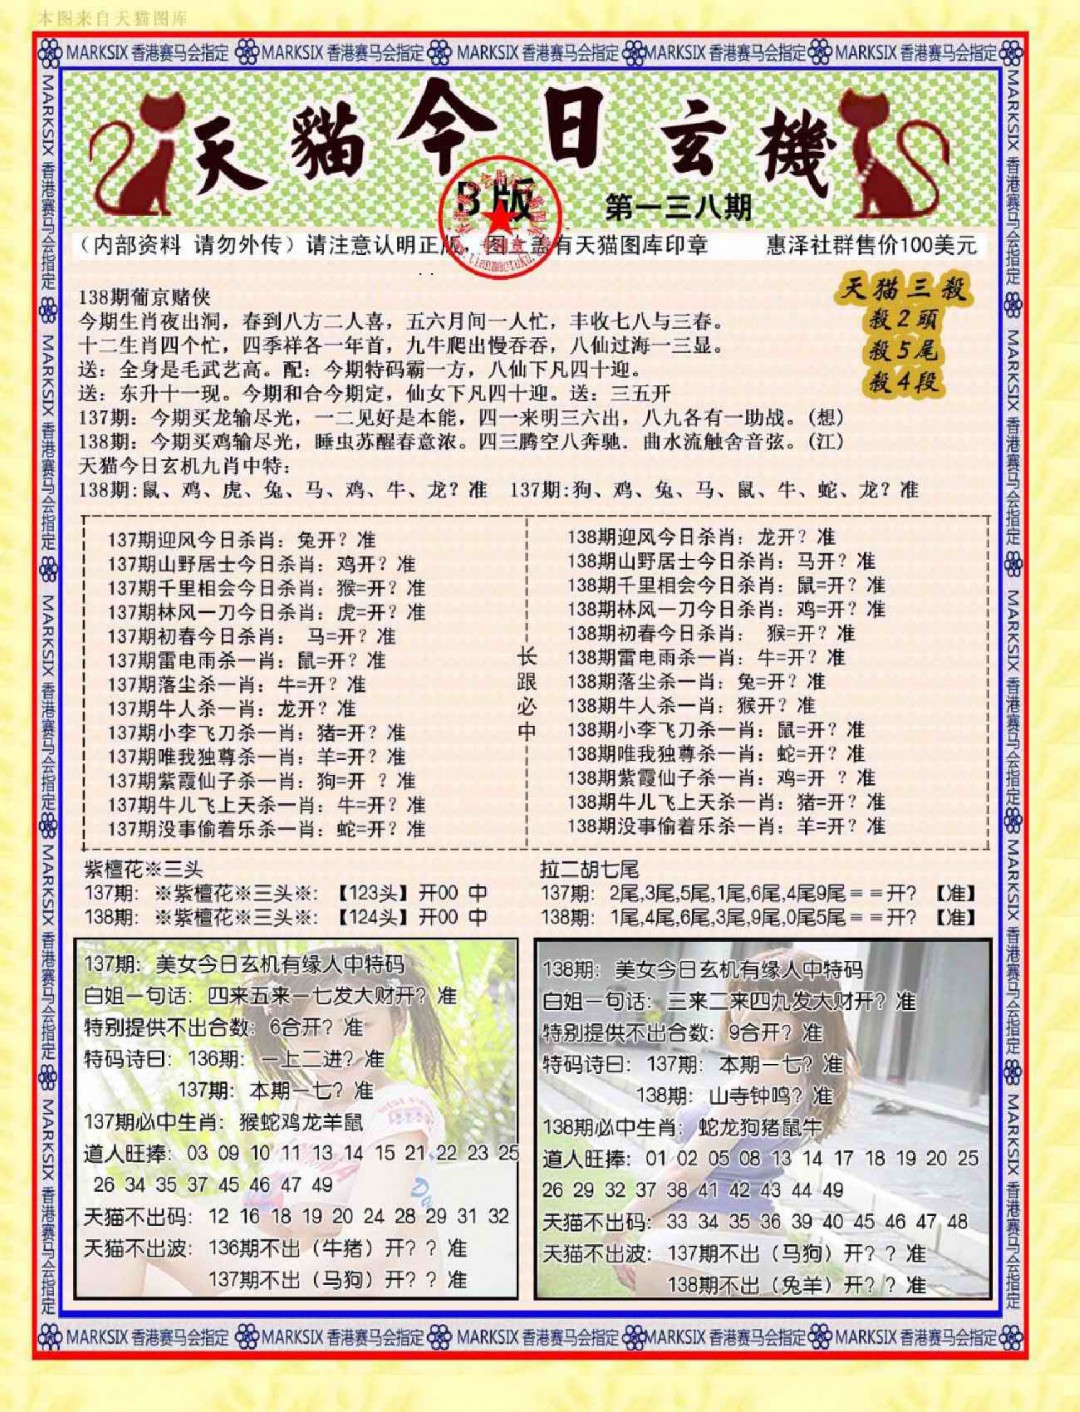 本图来自天猫图库
MARKSIX 香港赛马会指定 MARKSIX 香港赛马会指定 MARKSIX 香港赛马会指定 MARKSIX 香港赛马会指定 MARKSIX 香港赛马会指定
天貓今日玄機
B版
第一三八期
(内部资料 请勿外传)请注意认明正版,图上盖有天猫图库印章 惠泽社群售价100美元
天猫三殺
殺2頭
殺5尾
殺4段
138期葡京赌侠
今期生肖夜出洞，春到八方二人喜，五六月间一人忙，丰收七八与三春。
十二生肖四个忙，四季祥各一年首，九牛爬出慢吞吞，八仙过海一三显。
送：全身是毛武艺高。配：今期特码霸一方，八仙下凡四十迎。
送：东升十一现。今期和合今期定，仙女下凡四十迎。送：三五开
137期：今期买龙输尽光，一二见好是本能，四一来明三六出，八九各有一助战。(想)
138期：今期买鸡输尽光，睡虫苏醒春意浓。四三腾空八奔驰．曲水流触舍音弦。(江)
天猫今日玄机九肖中特：
138期:鼠、鸡、虎、兔、马、鸡、牛、龙？准 137期:狗、鸡、兔、马、鼠、牛、蛇、龙？准
137期迎风今日杀肖：兔开？准
137期山野居士今日杀肖：鸡开？准
137期千里相会今日杀肖：猴=开？准
137期林风一刀今日杀肖：虎=开？准
137期初春今日杀肖： 马=开？准
137期雷电雨杀一肖：鼠=开？准
137期落尘杀一肖：牛=开？准
137期牛人杀一肖：龙开？准
137期小李飞刀杀一肖：猪=开？准
137期唯我独尊杀一肖：羊=开？准
137期紫霞仙子杀一肖：狗=开 ？准
137期牛儿飞上天杀一肖：牛=开？准
137期没事偷着乐杀一肖：蛇=开？准
长
跟
必
中
138期迎风今日杀肖：龙开？准
138期山野居士今日杀肖：马开？准
138期千里相会今日杀肖：鼠=开？准
138期林风一刀今日杀肖：鸡=开？准
138期初春今日杀肖： 猴=开？准
138期雷电雨杀一肖：牛=开？准
138期落尘杀一肖：兔=开？准
138期牛人杀一肖：猴开？准
138期小李飞刀杀一肖：鼠=开？准
138期唯我独尊杀一肖：蛇=开？准
138期紫霞仙子杀一肖：鸡=开 ？准
138期牛儿飞上天杀一肖：猪=开？准
138期没事偷着乐杀一肖：羊=开？准
紫檀花※三头
137期：※紫檀花※三头※：【123头】开00 中
138期：※紫檀花※三头※：【124头】开00 中
拉二胡七尾
137期：2尾,3尾,5尾,1尾,6尾,4尾9尾＝＝开？【准】
138期：1尾,4尾,6尾,3尾,9尾,0尾5尾＝＝开？【准】
137期：美女今日玄机有缘人中特码
白姐一句话：四来五来一七发大财开？准
特别提供不出合数：6合开？准
特码诗曰：136期：一上二进？准
137期：本期一七？准
137期必中生肖：猴蛇鸡龙羊鼠
道人旺捧：03 09 10 11 13 14 15 21 22 23 25
26 34 35 37 45 46 47 49
天猫不出码：12 16 18 19 20 24 28 29 31 32
天猫不出波：136期不出（牛猪）开？？准
137期不出（马狗）开？？准
138期：美女今日玄机有缘人中特码
白姐一句话：三来二来四九发大财开？准
特别提供不出合数：9合开？准
特码诗曰：137期：本期一七？准
138期：山寺钟鸣？准
138期必中生肖：蛇龙狗猪鼠牛
道人旺捧：01 02 05 08 13 14 17 18 19 20 25
26 29 32 37 38 41 42 43 44 49
天猫不出码：33 34 35 36 39 40 45 46 47 48
天猫不出波：137期不出（马狗）开？？准
138期不出（兔羊）开？？准
MARKSIX 香港赛马会指定 MARKSIX 香港赛马会指定 MARKSIX 香港赛马会指定 MARKSIX 香港赛马会指定 MARKSIX 香港赛马会指定
MARKSIX 香港赛马会指定 MARKSIX 香港赛马会指定 MARKSIX 香港赛马会指定 MARKSIX 香港赛马会指定 MARKSIX 香港赛马会指定
MARKSIX 香港赛马会指定 MARKSIX 香港赛马会指定 MARKSIX 香港赛马会指定 MARKSIX 香港赛马会指定 MARKSIX 香港赛马会指定